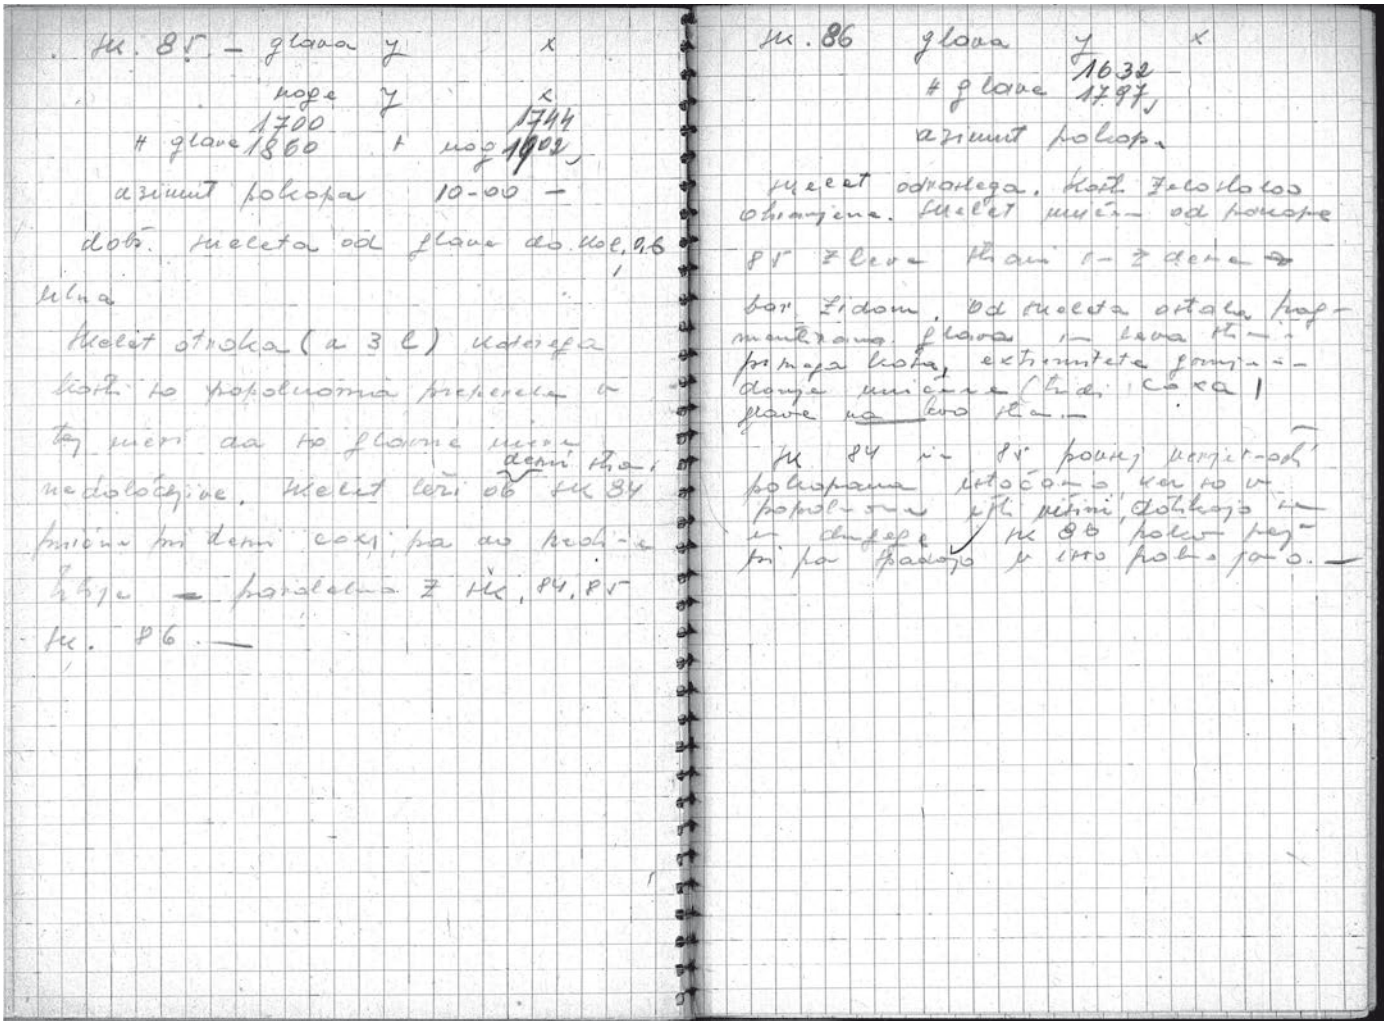 sk. 85 - glava y x
noge y x
1700 1744
# glave 1860 + nog 1902,
azimut pokopa 10-00 -
dolž. skeleta od glave do kol. 0,6
Skelet otroka (a 3 l) katerega
kosti so popolnoma preperele v
tej meri da so glavne mere
desni stra.
nedoločljive. Skelet leži ob sk 84
prične pri desni coxi pa do sredine
tibije - paralelno z sk. 84, 85
sk. 86. -
sk. 86 glava y x
1632
# glave 1797,
azimut pokop.
skelet odraslega. Kosti zelo slabo
ohranjene. Skelet uničen od pokopa
85 z leve strani in z desne
bar. zidom. Od skeleta ostala frag-
mentirana glava in leva stran
prsnega koša, extremitete gornje in
donje uničene (tudi coxa)
glave na levo stran -
sk 84 in 85 po vsej verjetnosti
pokopana istočasno, ker so v
popolnoma isti višini, dotikajo se
en drugega, sk 86 pokop
pa spadajo v isto jamo. -